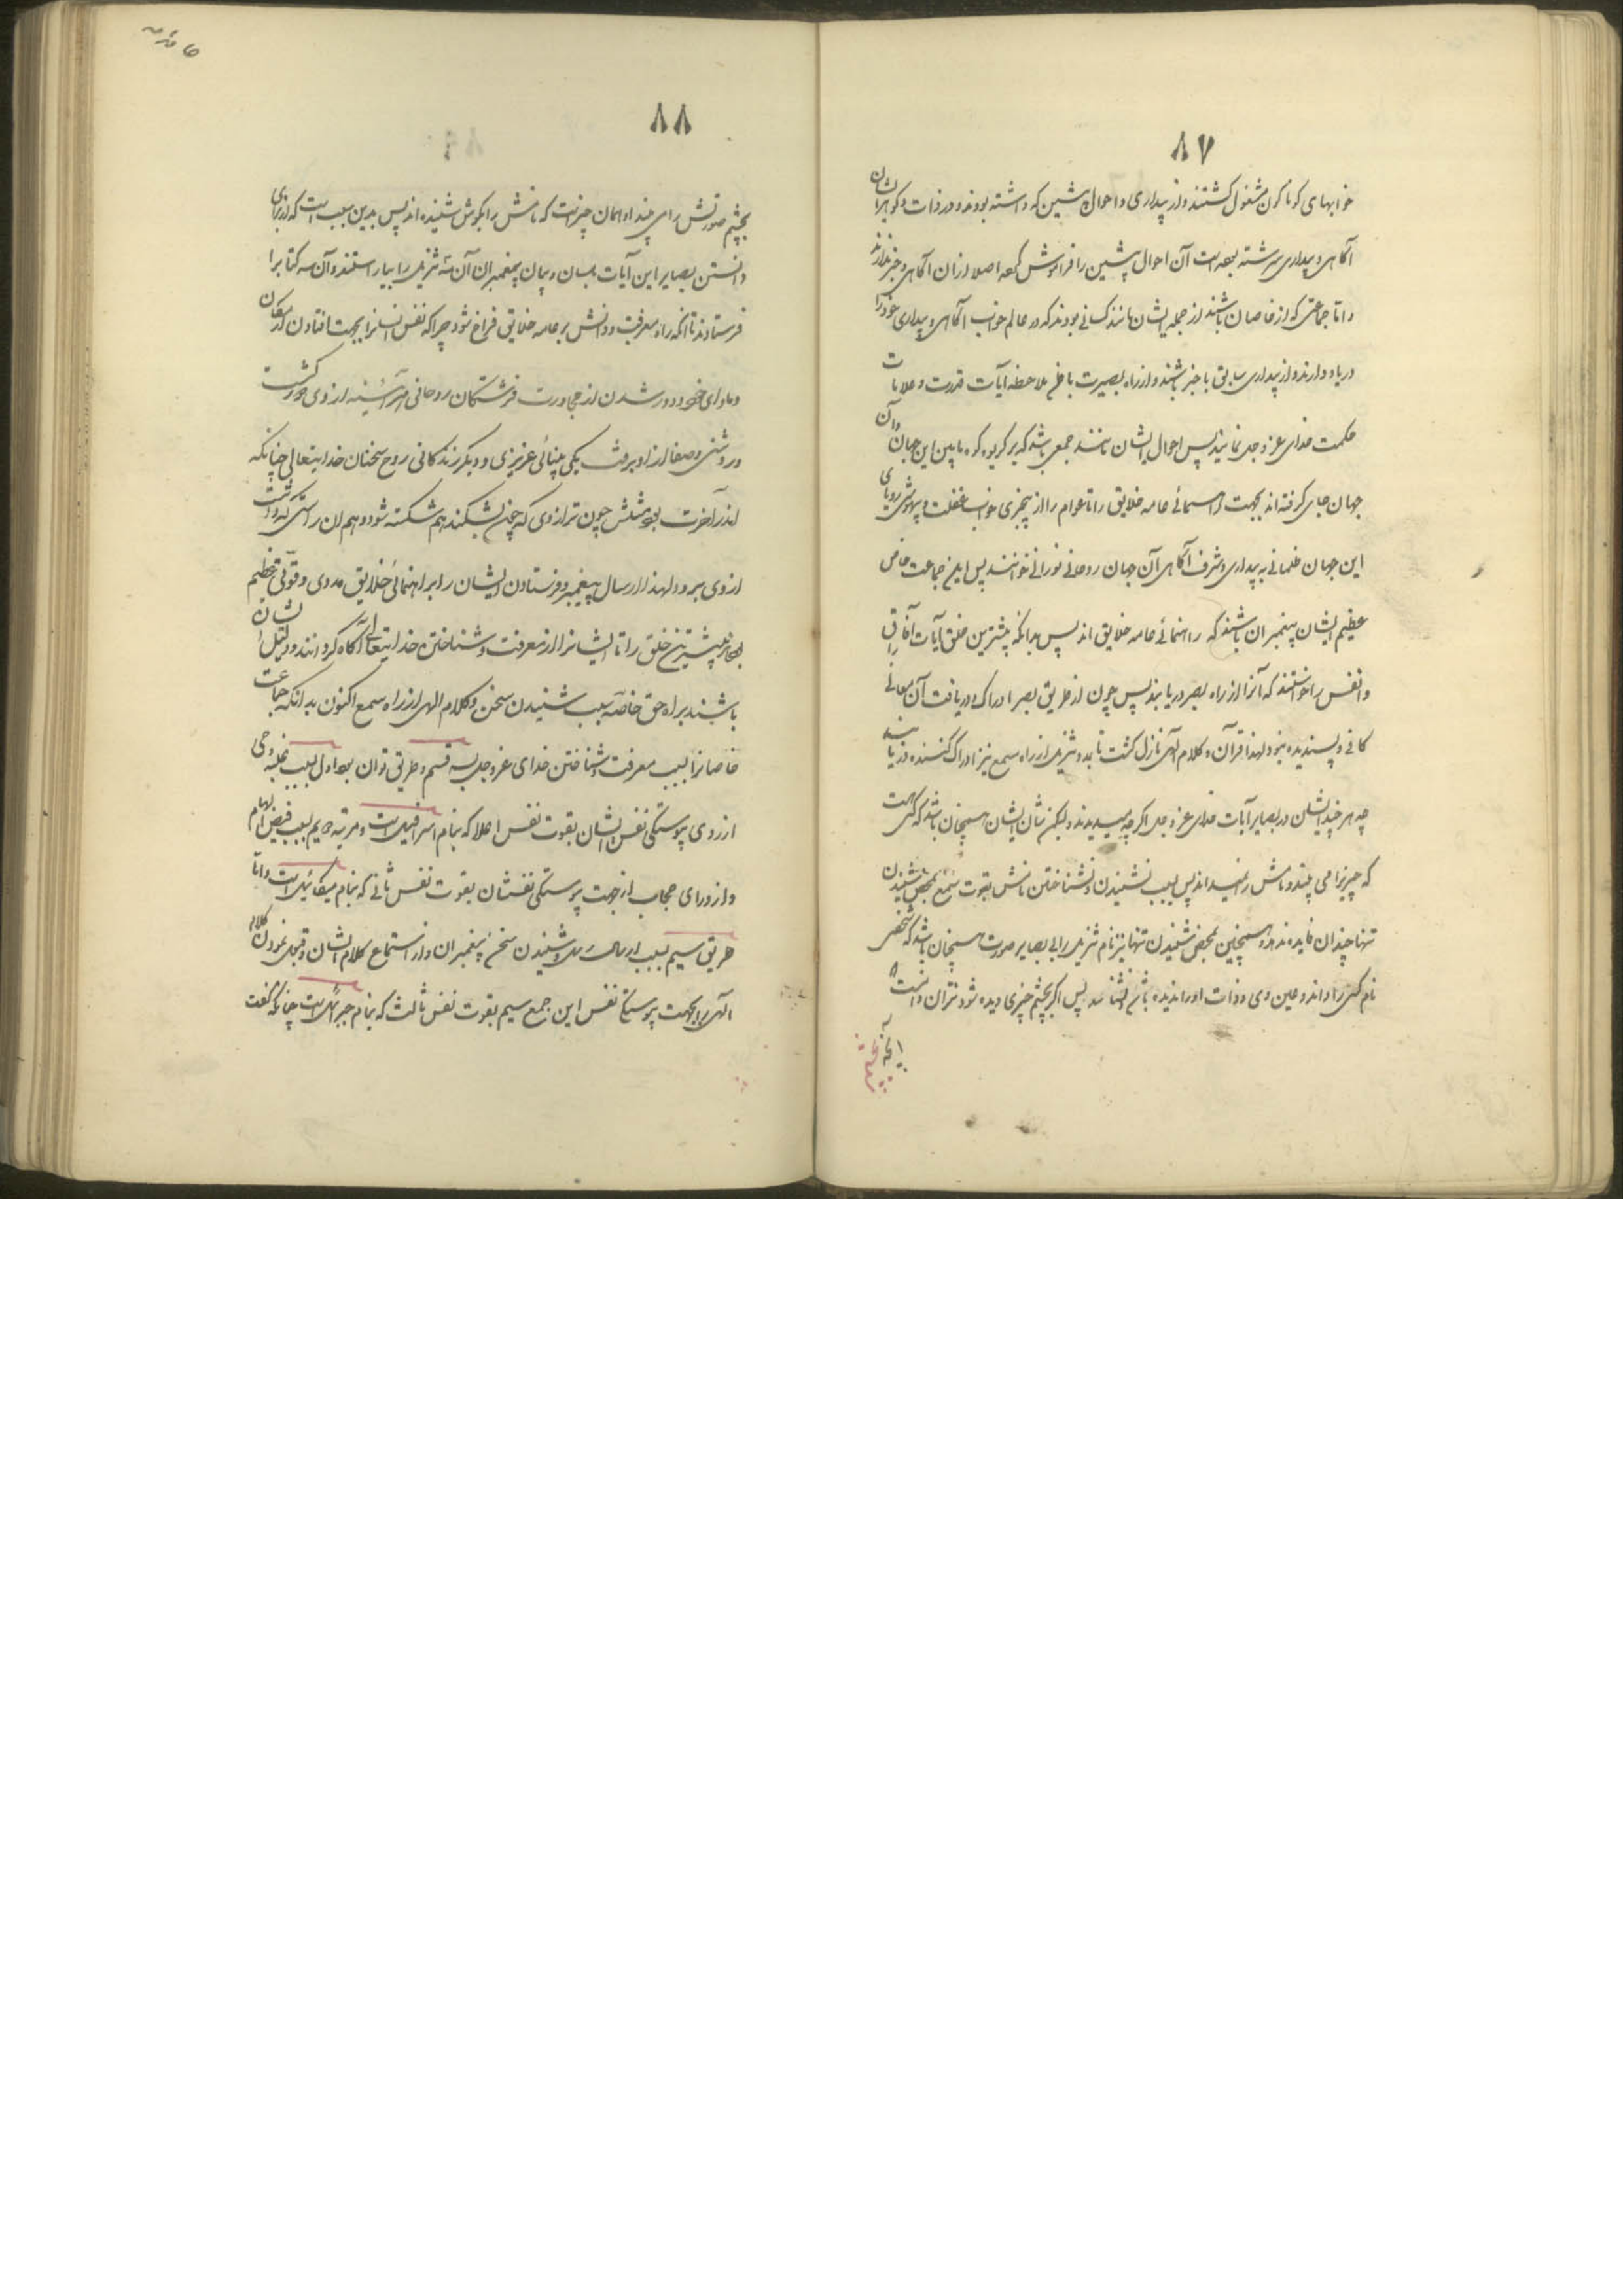 ۸۷
خوابهای کوناکون مشغول کشتند و از بیداری و احوال پیشین که داشته بودند و در ذات و کوهر ایشان
آکاهی و بیداری سرشته بوده است آن احوال پیشین را فراموش کرده اصلا از آن آکاهی و خبر ندارند
و اما جماعتی که از خاصان باشند از جمله ایشان مانند کسانی بودند که در عالم خواب آکاهی و بیداری خود را
در یاد دارند و از بیداری سابق با خبر باشند و از راه بصیرت باطن ملاحظه آیات قدرت و علامات
حکمت خدای عز و جل نمایند پس احوال ایشان مانند جمعی باشد که بر کریوه کوه مابین این جهان و آن
جهان جای کرفته اند بجهت راهنمائی عامه خلایق را تا عوام را از بیخبری خواب غفلت و بیهوشی رویای
این جهان ظلمانی به بیداری و شرف آکاهی آن جهان روحانی نورانی خوانند پس این جماعت خاص
عظیم ایشان پیغمبران باشند که راهنمائی عامه خلایق اند پس بدانکه بیشترین خلق آیات آفاق
و انفس را خواستند که آنرا از راه بصر دریابند پس چون از طریق بصر ادراک و دریافت آن معانی را
کافی و پسندیده نبود لهذا قرآن و کلام الهی نازل کشت تا بمدد تنزیل از راه سمع نیز ادراک کنند و دریابند
چه هر چند ایشان در بصایر آیات خدای عز و جل اکر چه میدیدند ولیکن شان ایشان همچنان باشد که کسی است
که چیزیرا می بیند و نامش را نمیداند پس بسبب نشنیدن و نشناختن نامش بقوت سمع بمحض شنیدن
تنها چندان فایده ندارد و همچنین بمحض شنیدن تنها نیز نام تنزیل را بی بصایر صورت همچنان باشد که شخصی
نام کسی را داند و عین وی و ذات او را ندیده باشد و نشناسد پس اکر بچشم چیزی دیده شود نتوان دانست
۸۸
بچشم صورتش را می بیند او همان چیز است که نامش را بکوش شنیده اند پس بدین سبب است که از برای
دانستن بصایر این آیات بلسان و بیان پیغمبران آن سه تنزیل را بیاراستند و آن سه کتاب را
فرستادند تا آنکه راه معرفت و دانش بر عامه خلایق فراخ شود چرا که نفس انسانرا بجهت افتادن در مکان
و ماوای خود و دور شدن از مجاورت فرشتکان روحانی آئینه از وی کشت
و روشنی و صفا از او برفت یکی بینائی غریزی و دیکر زندکانی روح سخنان خدایتعالی چنانکه
اندر آخرت بود مثلش چون ترازوی که چون بشکند هم شکسته شود و هم آن راستی که داشت
از وی برود لهذا ارسال پیغمبر و فرستادن ایشان را براهنمائی خلایق مددی و قوتی عظیم
بود مر بیشترین خلق را تا ایشانرا از معرفت و شناختن خدایتعالی آکاه کردانند و دلیل ایشان
باشند براه حق خاصه بسبب شنیدن سخن و کلام الهی از راه سمع اکنون بدانکه جماعت
خاصانرا بسبب معرفت و شناختن خدای عز و جل بسه قسم و طریق توان بود اول بسبب غلبه وحی
از روی پیوستکی نفس ایشان بقوت نفس اعلا که بنام اسرافیل است و مرتبه دویم بسبب فیض الهام
و از ورای حجاب از جهت پیوستکی نفسشان بقوت نفس ثانی که بنام میکائیل است و اما
طریق سیم بسبب ارسال رسل و شنیدن سخن پیغمبران و از استماع کلام ایشان و قبول نمودن کلام
الهی را بجهت پیوستکی نفس این جمع سیم بقوت نفس ثالث که بنام جبرائیل است چنانکه کفت